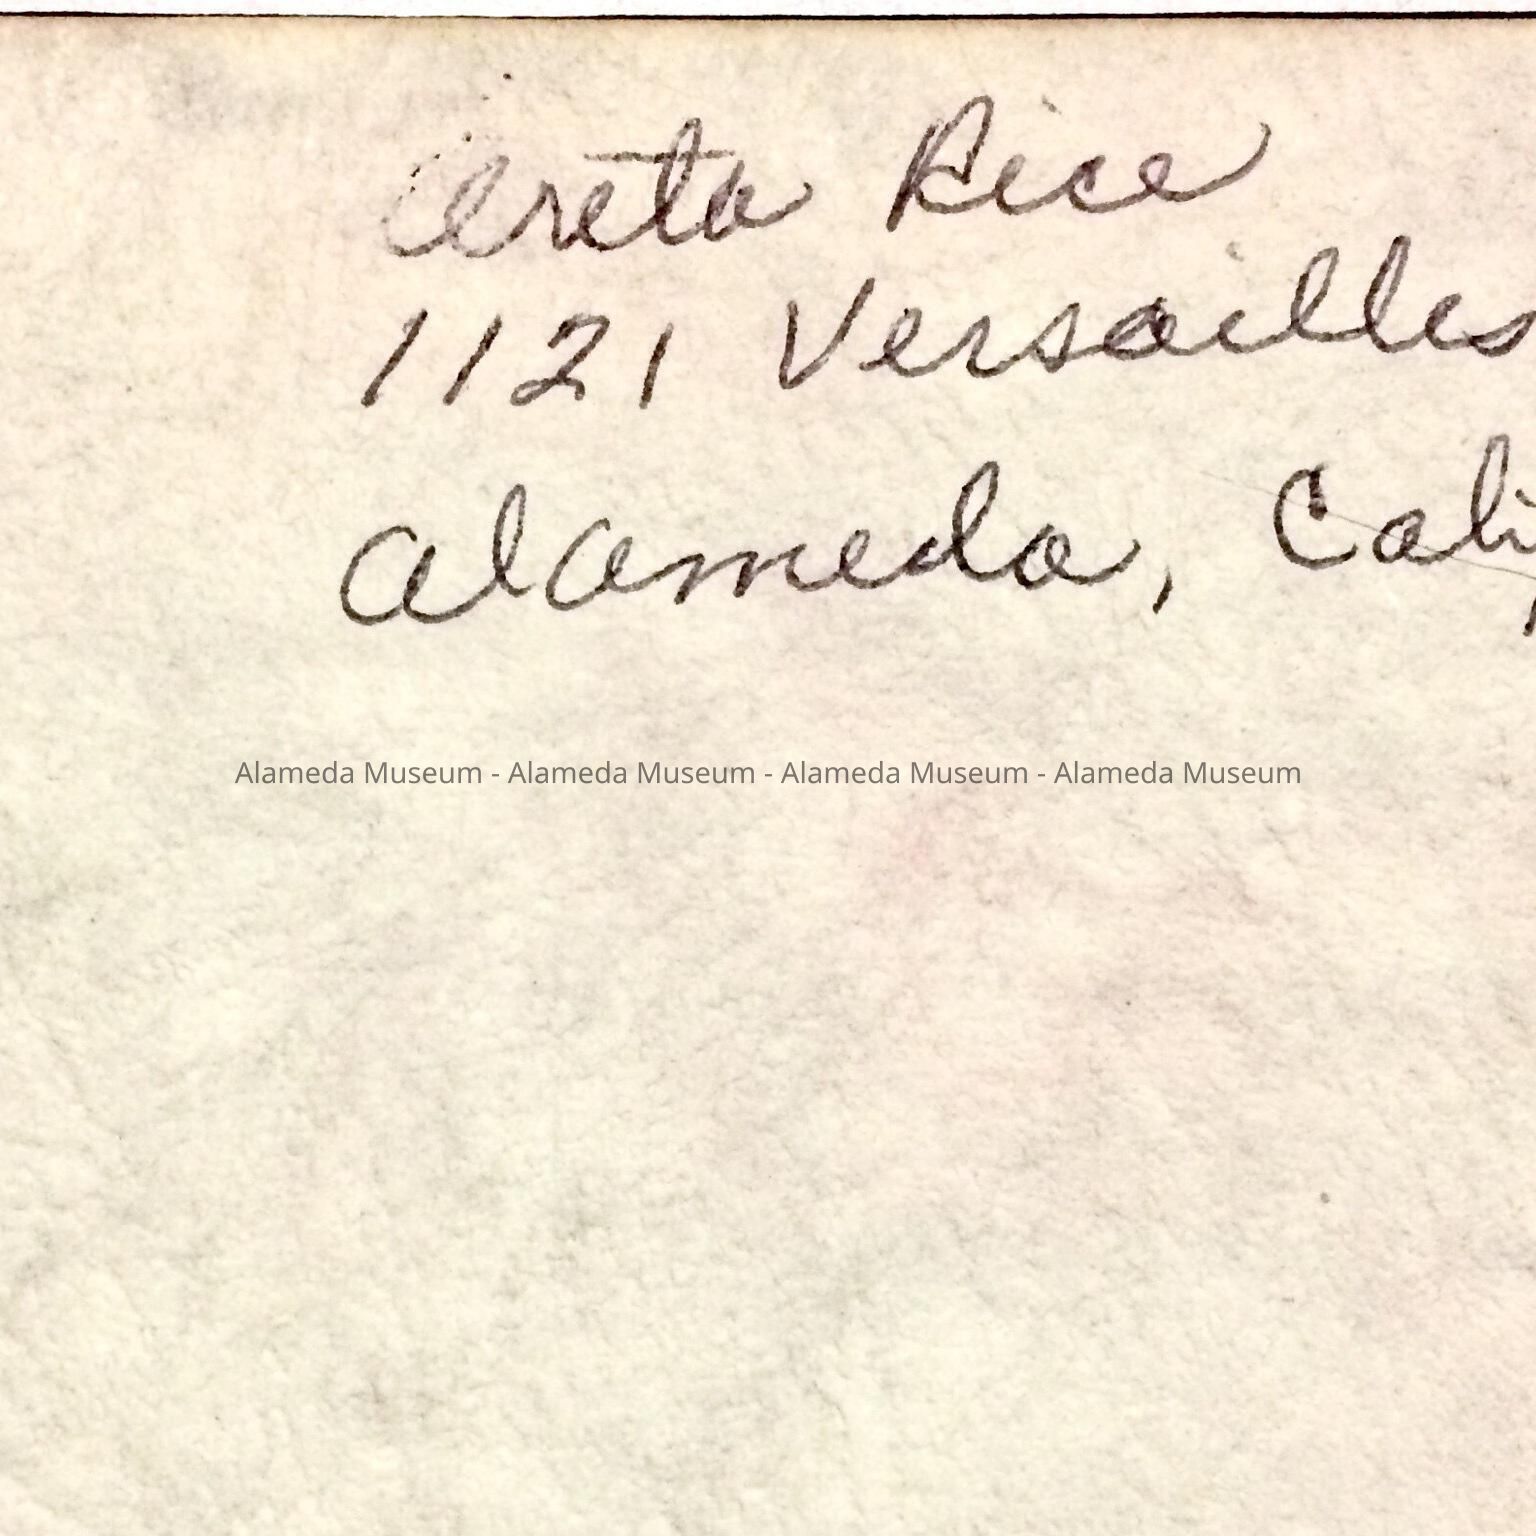 Areta Rice
1121 Versailles
Alameda, Calif
Alameda Museum - Alameda Museum - Alameda Museum - Alameda Museum